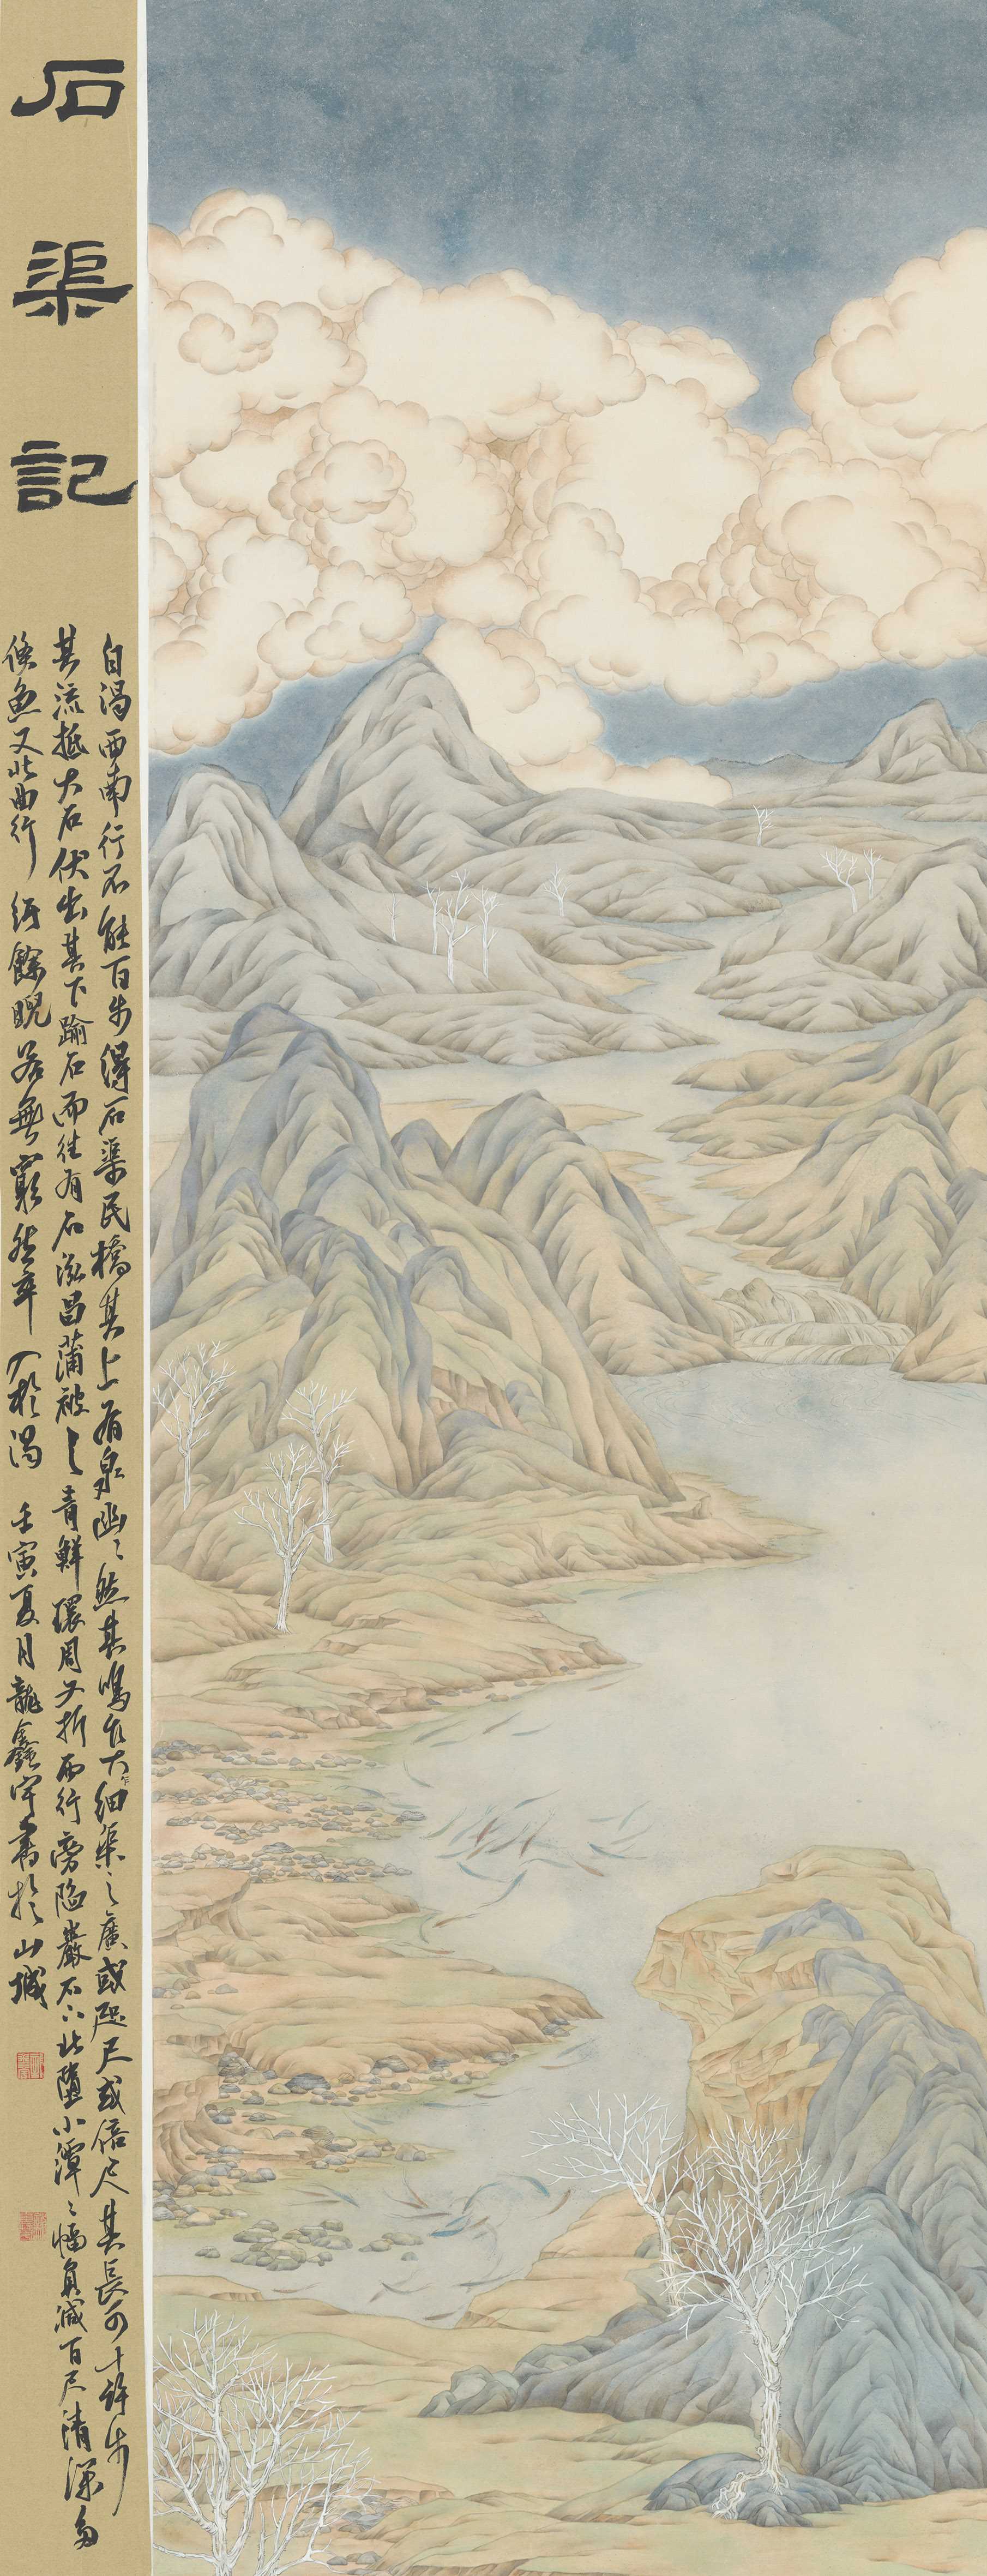 石渠記
自渴西南行不能百步得石渠民橋其上有泉幽々然其鳴乍大乍細渠之廣或咫尺或倍尺其長可十許步
其流抵大石伏出其下踰石而往有石泓昌蒲被之青鮮環周又折西行旁陷巖石下北墮小潭々幅員減百尺清深多
倏魚又北曲行紆餘睨若無窮然卒入於渴 壬寅夏月龍鑫宇書於山城